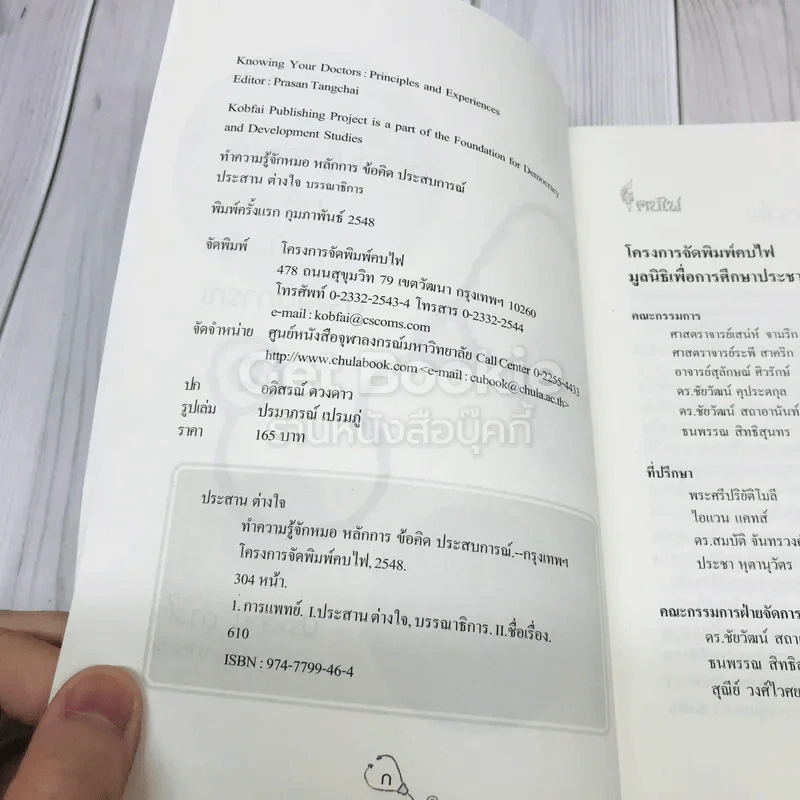 Knowing Your Doctors : Principles and Experiences
Editor : Prasan Tangchai
Kobfai Publishing Project is a part of the Foundation for Democracy
and Development Studies
ทำความรู้จักหมอ หลักการ ข้อคิด ประสบการณ์
ประสาน ต่างใจ บรรณาธิการ
พิมพ์ครั้งแรก กุมภาพันธ์ 2548
จัดพิมพ์ โครงการจัดพิมพ์คบไฟ
478 ถนนสุขุมวิท 79 เขตวัฒนา กรุงเทพฯ 10260
โทรศัพท์ 0-2332-2543-4 โทรสาร 0-2332-2544
e-mail : kobfai@cscoms.com
จัดจำหน่าย ศูนย์หนังสือจุฬาลงกรณ์มหาวิทยาลัย Call Center 0-2255-4433
http://www.chulabook.com <e-mail : cubook@chula.ac.th>
ปก อดิสรณ์ ดวงดาว
รูปเล่ม ปรมาภรณ์ เปรมภู่
ราคา 165 บาท
Get Bookie
ร้านหนังสือบุ๊คกี้
ประสาน ต่างใจ
ทำความรู้จักหมอ หลักการ ข้อคิด ประสบการณ์.--กรุงเทพฯ
โครงการจัดพิมพ์คบไฟ, 2548.
304 หน้า.
1. การแพทย์. I.ประสาน ต่างใจ, บรรณาธิการ. II.ชื่อเรื่อง.
610
ISBN : 974-7799-46-4
ก
คบไฟ
โครงการจัดพิมพ์คบไฟ
มูลนิธิเพื่อการศึกษาประชา
คณะกรรมการ
ศาสตราจารย์เสน่ห์ จามริก
ศาสตราจารย์ระพี สาคริก
อาจารย์สุลักษณ์ ศิวรักษ์
ดร.ชัยวัฒน์ คุประตกุล
ดร.ชัยวัฒน์ สถาอานันท์
ธนพรรณ สิทธิสุนทร
ที่ปรึกษา
พระศรีปริยัติโมลี
ไอแวน แคทส์
ดร.สมบัติ จันทรวงศ์
ประชา หุตานุวัตร
คณะกรรมการฝ่ายจัดการ
ดร.ชัยวัฒน์ สถา
ธนพรรณ สิทธิสุ
สุณีย์ วงศ์ไวศย